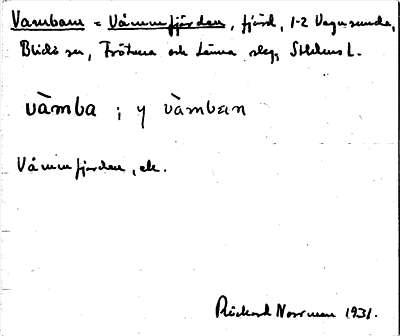 Vamban = Våmmfjärden, fjärd, 1-2 Vagnsunda,
Blidö sn, Frötuna och Länna slg, Sthlms L.
vàmba ; y vàmban
Våmmfjärden, ek.
Rickard Norrman 1931.